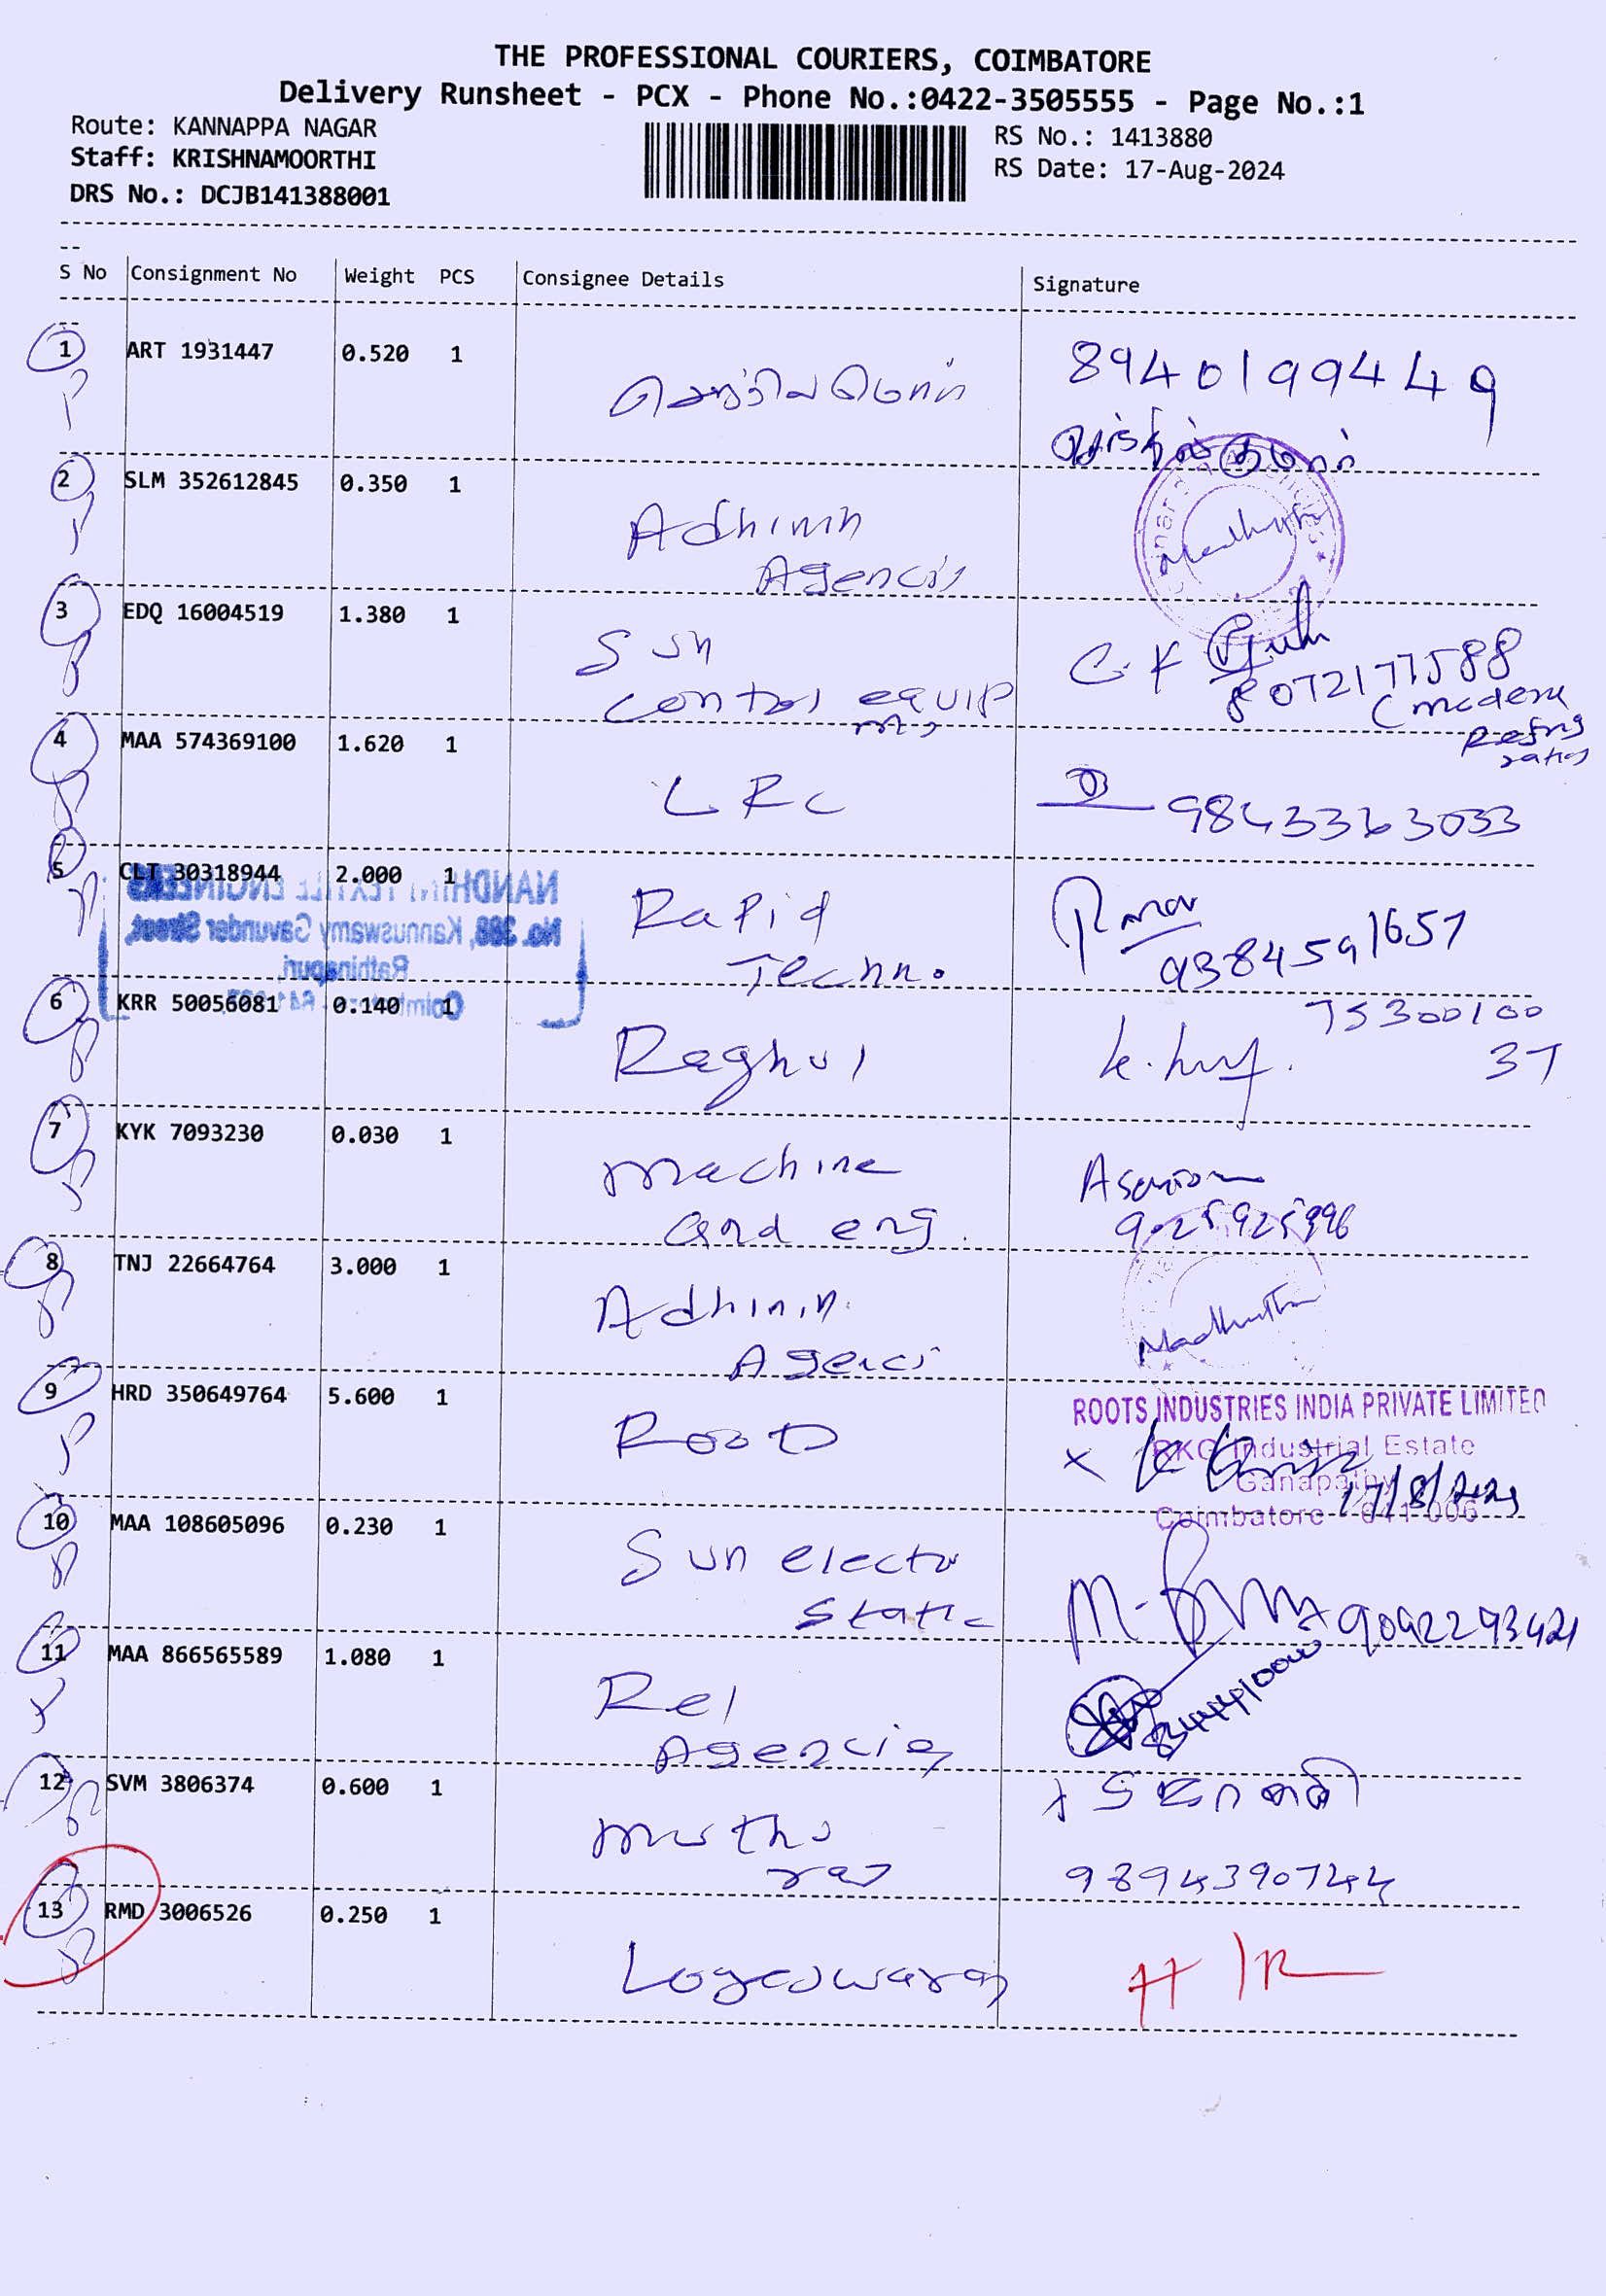 THE PROFESSIONAL COURIERS, COIMBATORE
Delivery Runsheet - PCX - Phone No.:0422-3505555 - Page No.:1
Route: KANNAPPA NAGAR
Staff: KRISHNAMOORTHI
DRS No.: DCJB141388001
RS No.: 1413880
RS Date: 17-Aug-2024
S No Consignment No Weight PCS Consignee Details Signature
1 ART 1931447 0.520 1
8940199449
2 SLM 352612845 0.350 1
Adhinin
Agencis
3 EDQ 16004519 1.380 1
Sun
control equip
8072177588
4 MAA 574369100 1.620 1
LRC
9843363033
5 CLT 30318944 2.000 1
NANDHINI TEXTILE ENGINEERS
No. 388, Kannuswamy Gavunder Street,
Rathinapuri
Rapid
Techno.
9384591657
6 KRR 50056081 0.140 1
Raghul
75300100
37
7 KYK 7093230 0.030 1
machine
and eng.
8 TNJ 22664764 3.000 1
Adhinin.
Agenci
9 HRD 350649764 5.600 1
Roots
ROOTS INDUSTRIES INDIA PRIVATE LIMITED
RKG Industrial Estate
Ganapathy
Coimbatore - 641 006
10 MAA 108605096 0.230 1
Sun electro
static
9092293421
11 MAA 866565589 1.080 1
Rel
Agencies
12 SVM 3806374 0.600 1
muthu
raj
9894390744
13 RMD 3006526 0.250 1
Logeswaran